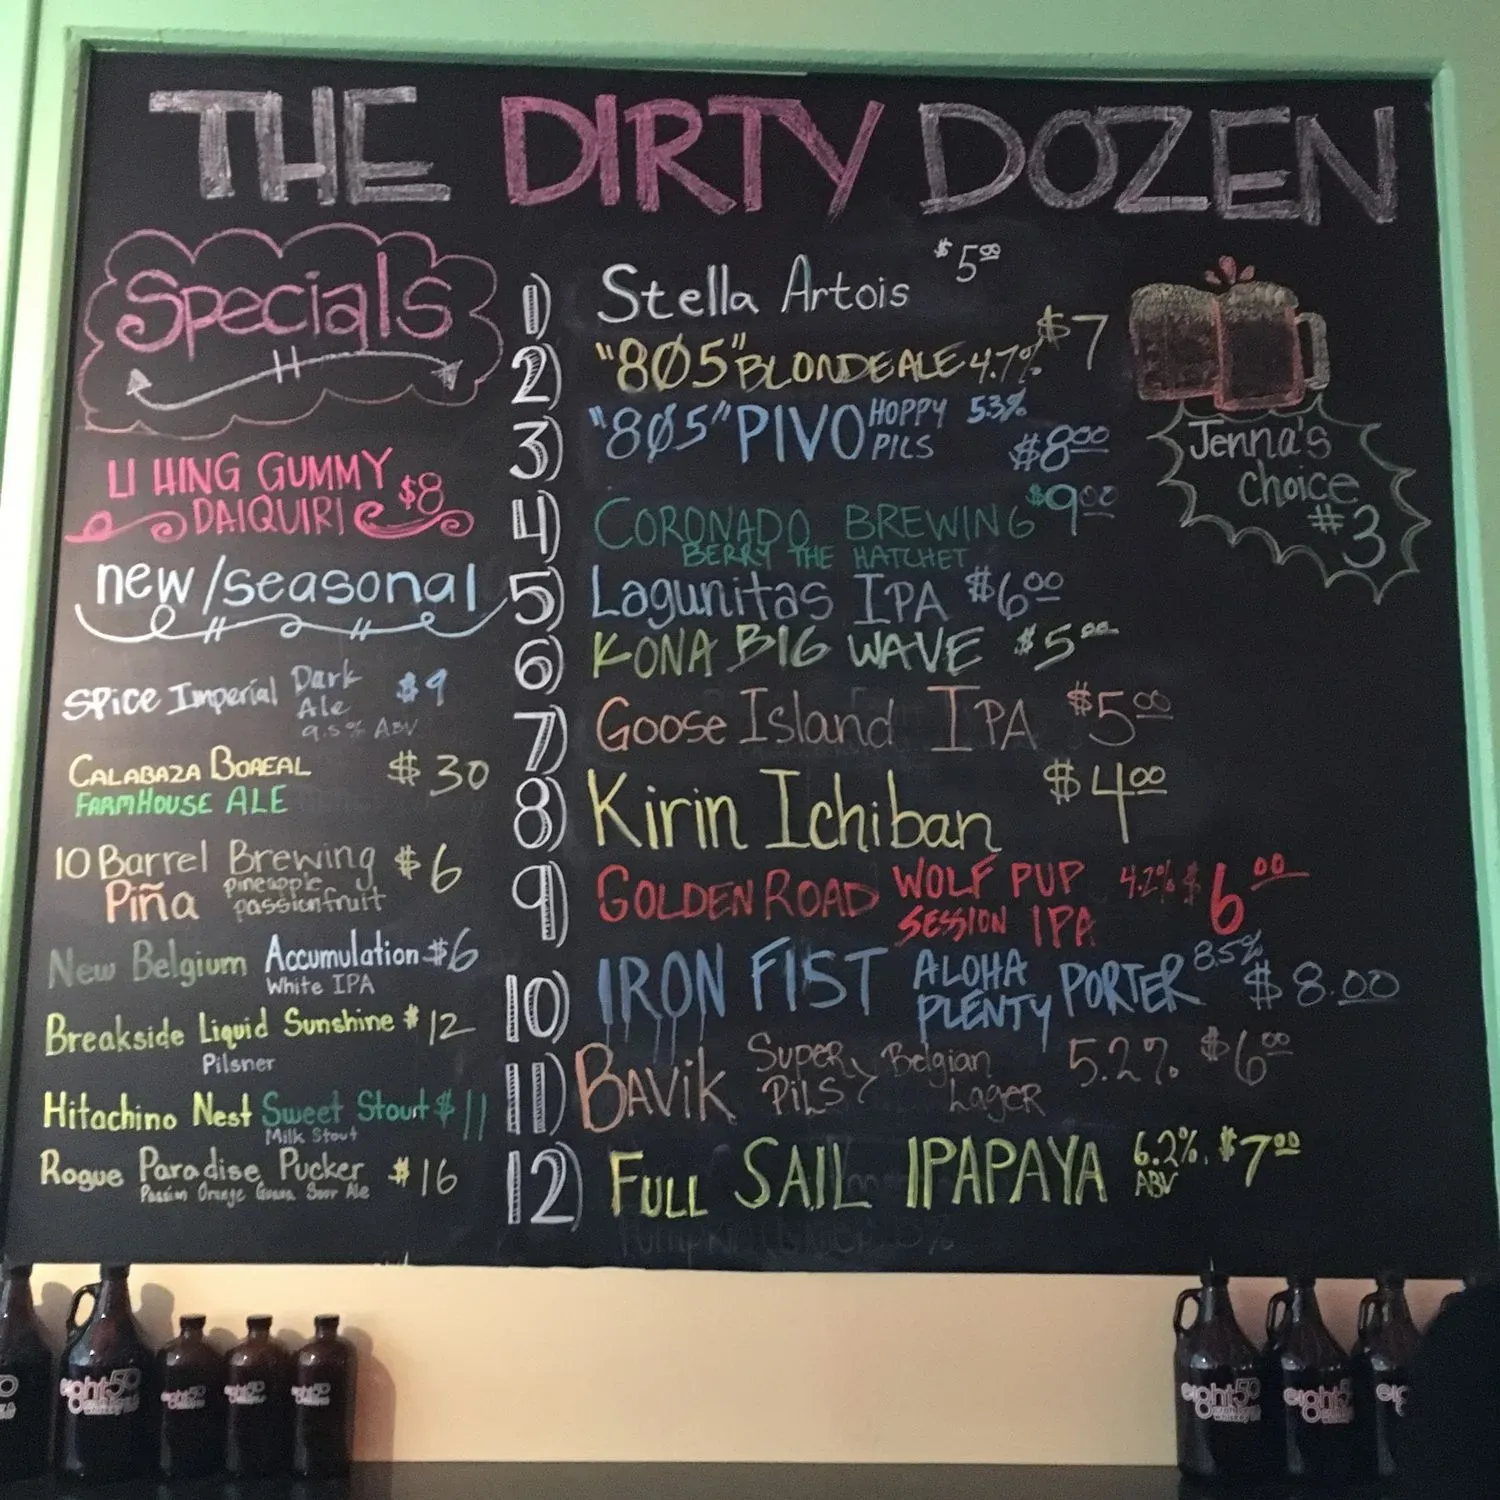 THE DIRTY DOZEN
Specials
LI HING GUMMY
DAIQUIRI $8
new/seasonal
SPice Imperial Dark
Ale $9
9.5% ABV
CALABAZA BOREAL $30
FARMHOUSE ALE
10 Barrel Brewing $6
Piña pineapple
passionfruit
New Belgium Accumulation $6
White IPA
Breakside Liquid Sunshine $12
Pilsner
Hitachino Nest Sweet Stout $11
Milk Stout
Rogue Paradise Pucker $16
Passion Orange Guava Sour Ale
1) Stella Artois $5.00
2) "8Ø5" BLONDE ALE 4.7% $7
3) "8Ø5" PIVO HOPPY 5.3%
PILS $8.00
4) CORONADO BREWING $9.00
BERRY THE HATCHET
5) Lagunitas IPA $6.00
6) KONA BIG WAVE $5.00
7) Goose Island IPA $5.00
8) Kirin Ichiban $4.00
9) GOLDEN ROAD WOLF PUP 4.2% $6.00
SESSION IPA
10) IRON FIST ALOHA PORTER 8.5% $8.00
PLENTY
11) BAVIK SUPER Belgian 5.2% $6.00
PILS Lager
12) FULL SAIL IPAPAYA 6.2% $7.00
ABV
Jenna's
choice
#3
eight50
eight50
eight50
eight50
eight50
eight50